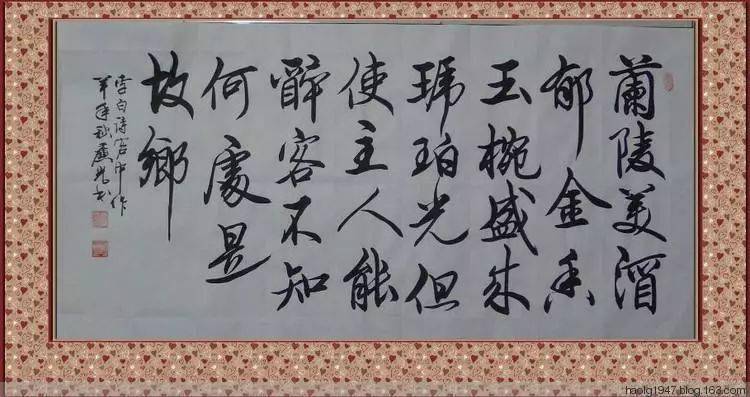 蘭陵美酒
郁金香
玉椀盛来
琥珀光但
使主人能
醉客不知
何處是
故鄉
李白詩客中作
羊年秋书
haolg1947.blog.163.com